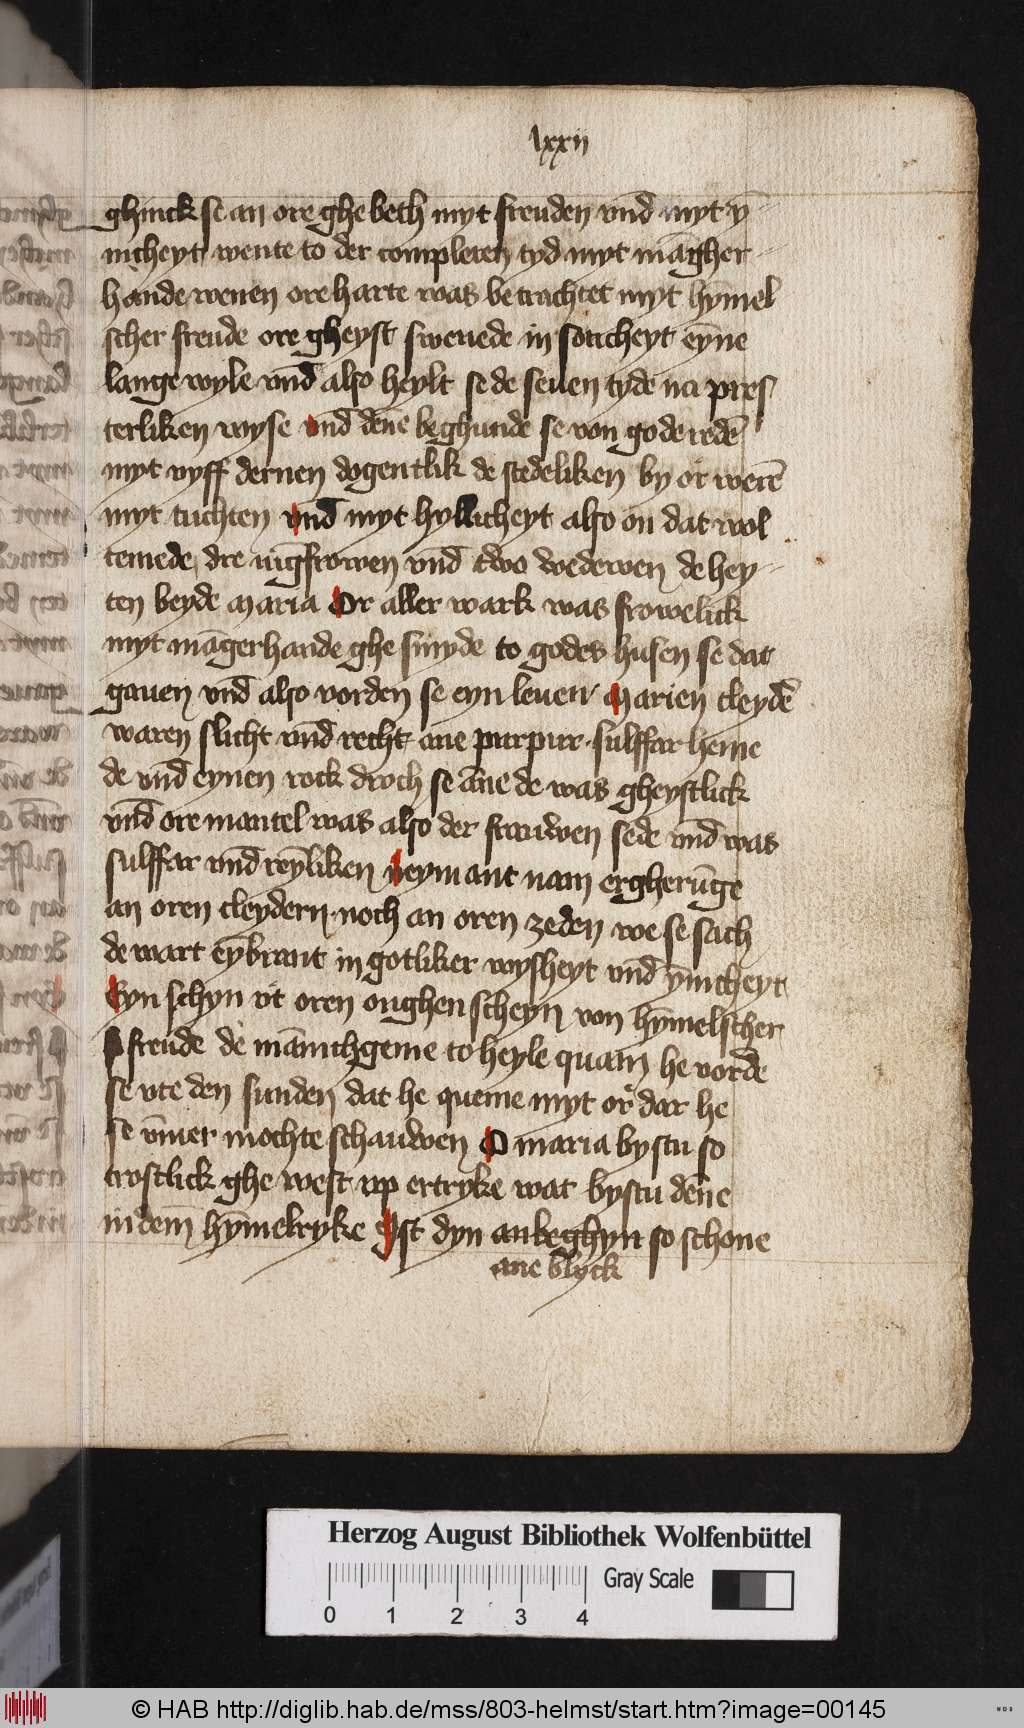 lxxii
ghinck se an ore ghe beth myt freuden vnd̄ myt ȳ
nicheyt wente to der completen tyd myt māgher
hande wenen ore harte was betrachtet myt hȳmel
scher freude ore gheyst sweuede in soticheyt eȳne
lange wyle vnd̄ also heylt se de seuen tyde na pres
terliken wyse vnd̄ dēne beghunde se von gode redē
myt vyff dernen dogentlik de stedeliken by or werē
myt tuchten vnd̄ myt hyllicheyt also on dat wol
temede dre iūgfrowen vnd̄ two wedewen de hey
ten beyde maria Or aller wark was frowelick
myt māgerhande ghe smyde to godes husen se dat
gauen vnd̄ also vorden se eyn leuen Marien cleydē
waren slicht vnd̄ recht ane purpur sulffar heme
de vnd̄ eynen rock droch se āne de was gheystlick
vnd̄ ore mantel was also der frauwen sede vnd̄ was
sulffar vnd̄ reȳliken neymant nam ergherūge
an oren cleydern noch an oren zeden we se sach
de wart eȳbrant in gotliker wysheyt vnd̄ ȳnicheyt
Eyn schyn vt oren oughen scheyn von hȳmelscher
freude de mānichgeme to heyle quam he vorde
se vte den sunden dat he queme myt or dar he
se v̄mer mochte schauwen O maria bystu so
trostlick ghe west vp ertryke wat bystu dēne
in dem hȳmelryke Ist dyn anbeghyn so schone
ane blyck
Herzog August Bibliothek Wolfenbüttel
Gray Scale
0 1 2 3 4
© HAB http://diglib.hab.de/mss/803-helmst/start.htm?image=00145